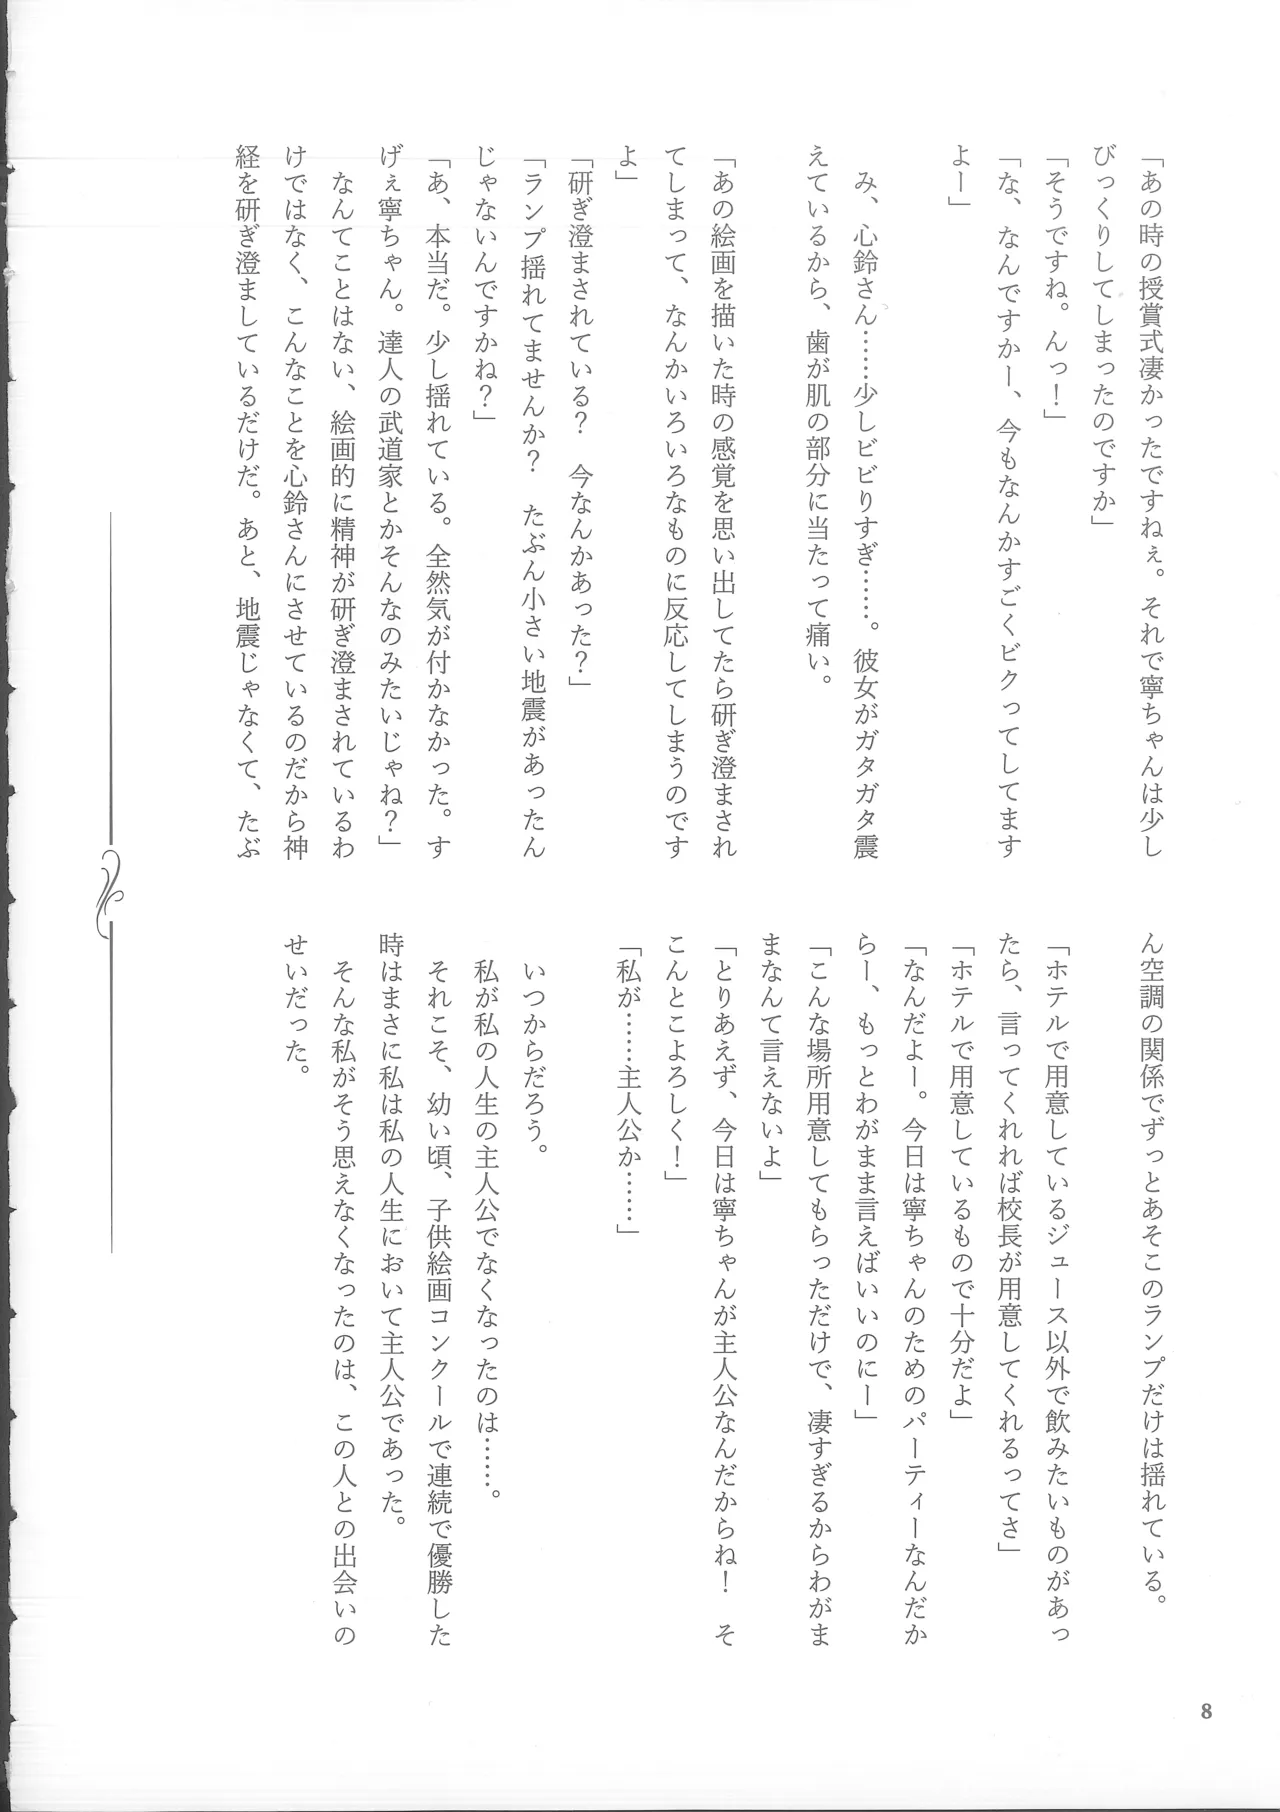 「あの時の授賞式凄かったですねぇ。それで寧ちゃんは少し
びっくりしてしまったのですか」
「そうですね。んっ！」
「な、なんですかー、今もなんかすごくビクってしてます
よー」
み、心鈴さん……少しビビりすぎ……。彼女がガタガタ震
えているから、歯が肌の部分に当たって痛い。
「あの絵画を描いた時の感覚を思い出してたら研ぎ澄まされ
てしまって、なんかいろいろなものに反応してしまうのです
よ」
「研ぎ澄まされている？　今なんかあった？」
「ランプ揺れてませんか？　たぶん小さい地震があったん
じゃないんですかね？」
「あ、本当だ。少し揺れている。全然気が付かなかった。す
げぇ寧ちゃん。達人の武道家とかそんなのみたいじゃね？」
なんてことはない、絵画的に精神が研ぎ澄まされているわ
けではなく、こんなことを心鈴さんにさせているのだから神
経を研ぎ澄ましているだけだ。あと、地震じゃなくて、たぶ
ん空調の関係でずっとあそこのランプだけは揺れている。
「ホテルで用意しているジュース以外で飲みたいものがあっ
たら、言ってくれれば校長が用意してくれるってさ」
「ホテルで用意しているもので十分だよ」
「なんだよー。今日は寧ちゃんのためのパーティーなんだか
らー、もっとわがまま言えばいいのにー」
「こんな場所用意してもらっただけで、凄すぎるからわがま
まなんて言えないよ」
「とりあえず、今日は寧ちゃんが主人公なんだからね！　そ
こんとこよろしく！」
「私が……主人公か……」
いつからだろう。
私が私の人生の主人公でなくなったのは……。
それこそ、幼い頃、子供絵画コンクールで連続で優勝した
時はまさに私は私の人生において主人公であった。
そんな私がそう思えなくなったのは、この人との出会いの
せいだった。
8